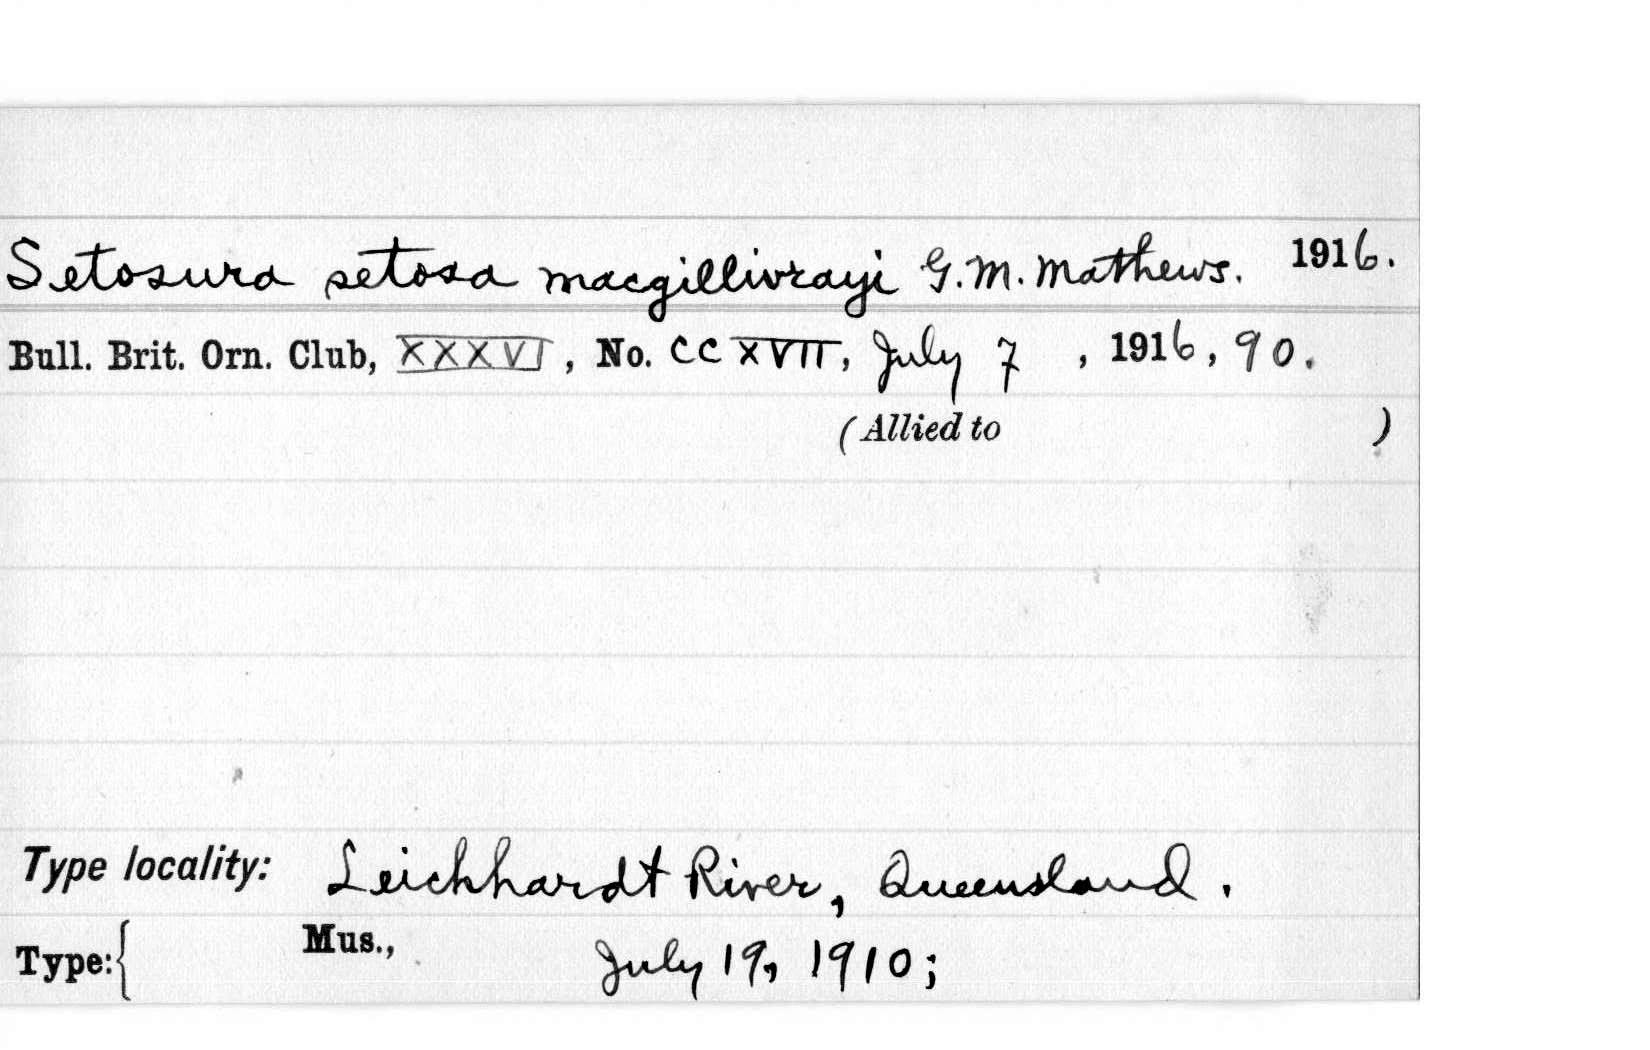 Setosura setosa macgillivrayi G.M. Mathews. 1916.
Bull. Brit. Orn. Club, XXXVI, No. CCXVII, July 7, 1916, 90.
(Allied to )
Type locality: Leichhardt River, Queensland.
Type:{ Mus., July 19, 1910;